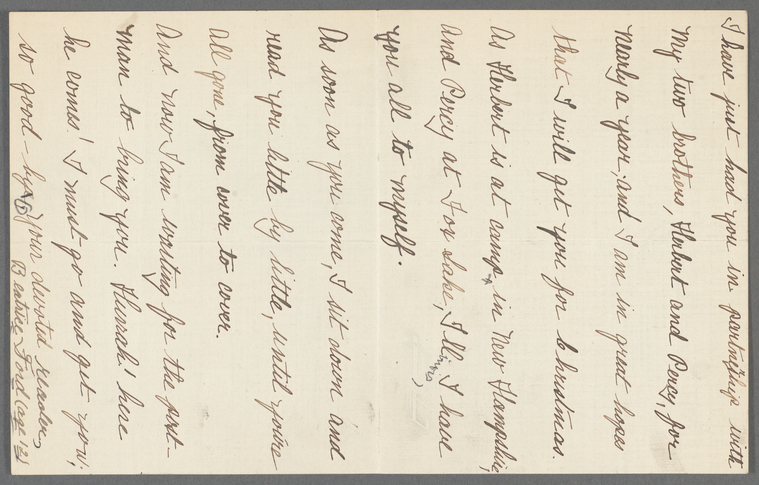 I have just had you in partnership with
my two brothers, Herbert and Percy, for
nearly a year; and I am in great hopes
that I will get you for Christmas.
As Herbert is at camp in New Hampshire,
and Percy at Fox Lake, Ill., I have
you all to myself.
As soon as you come, I sit down and
read you little by little, until you're
all gone, from cover to cover.
And now I am waiting for the post-
man to bring you. Hurrah! here
he comes! I must go and get you;
so good-by. Your devoted reader,
Beatrice Ford (age 12)